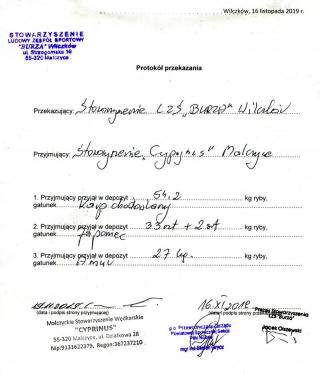 Wilczków, 16 listopada 2019 r.
STOWARZYSZENIE
LUDOWY ZESPÓŁ SPORTOWY
"BURZA" Wilczków
ul. Strzegomska 19
55-320 Malczyce
Protokół przekazania
Przekazujący: Stowarzyszenie LZS „BURZA" Wilczków
Przyjmujący: Stowarzyszenie „Cyprinus" Malczyce
1. Przyjmujący przyjął w depozyt 54,2 kg ryby,
gatunek Karp
2. Przyjmujący przyjął w depozyt 33 szt + 2 szt kg ryby,
gatunek
3. Przyjmujący przyjął w depozyt 27 kg. kg ryby,
gatunek
(data i podpis strony przyjmującej)
16.XI.2019
(data i podpis strony przekazującej)
Malczyckie Stowarzyszenie Wędkarskie
"CYPRINUS"
55-320 Malczyce, ul. Działkowa 28
Nip:9131622379, Regon:367237210
p.o Przewodniczący Zarządu
Prezes Stowarzyszenia
LZS "Burza"
Jacek Olszewski